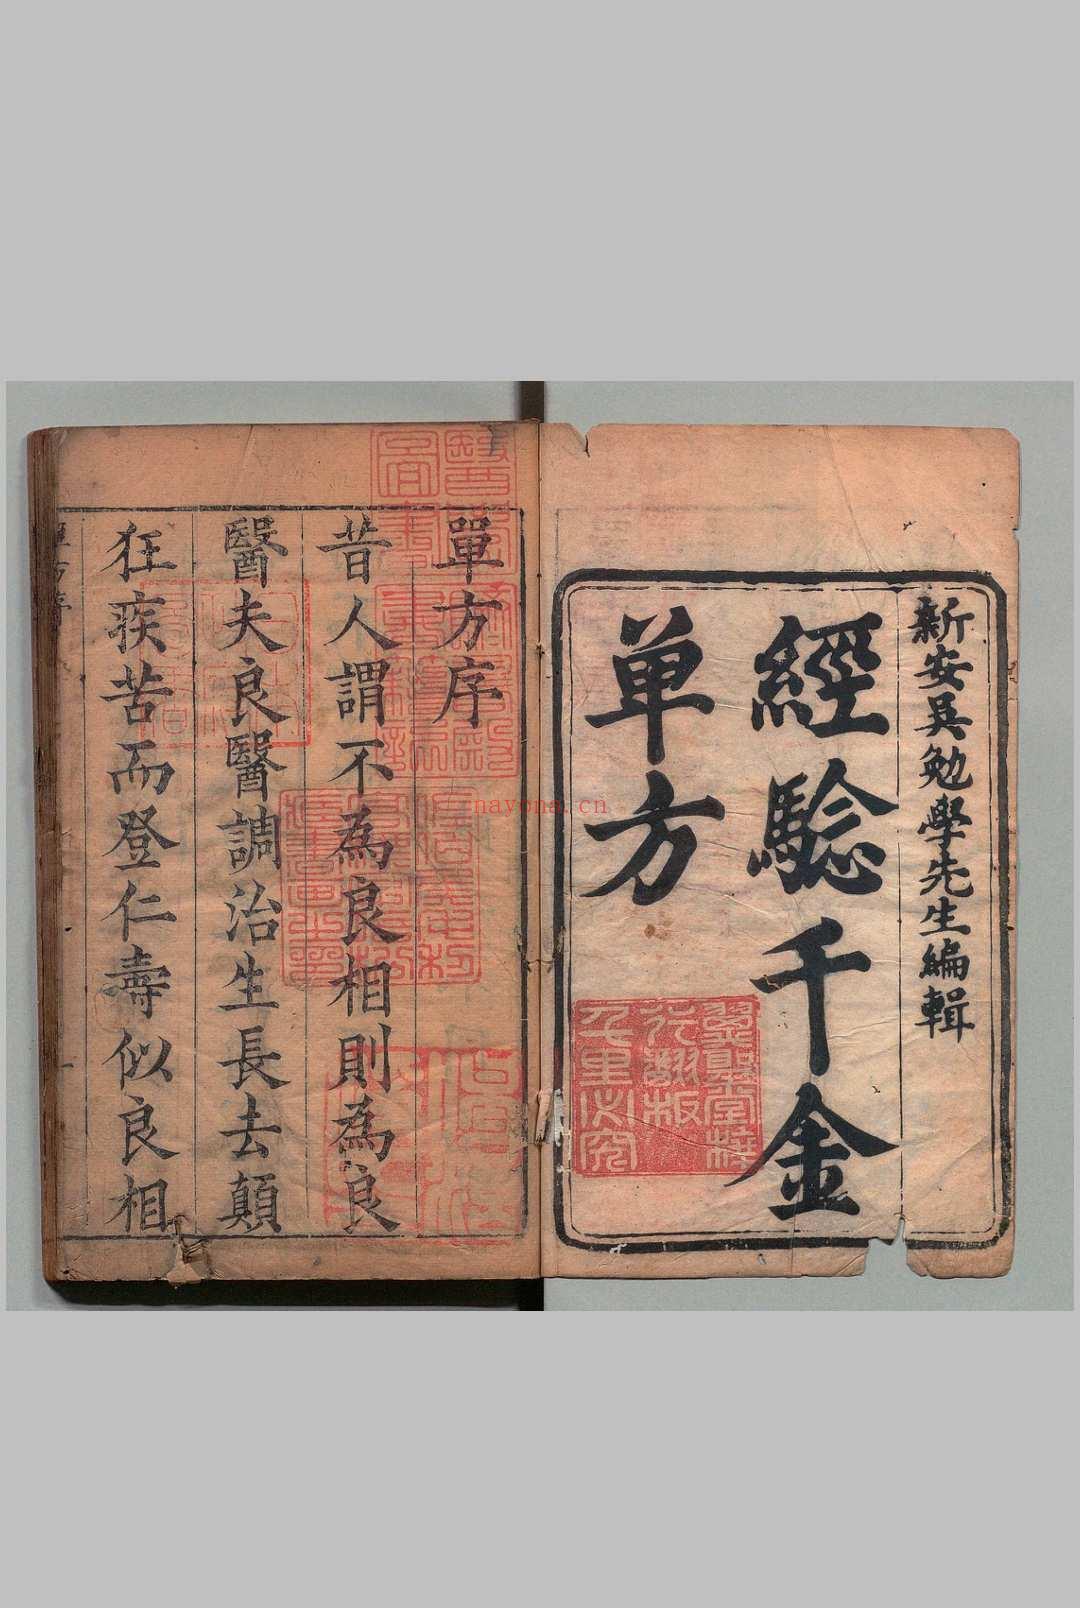 新安吳勉學先生編輯
經驗千金
单方
翌聖堂梓
行翻板
千里必究
單方序
昔人謂不為良相則為良
醫夫良醫調治生長去顛
狂疾苦而登仁壽似良相
nayona.cn